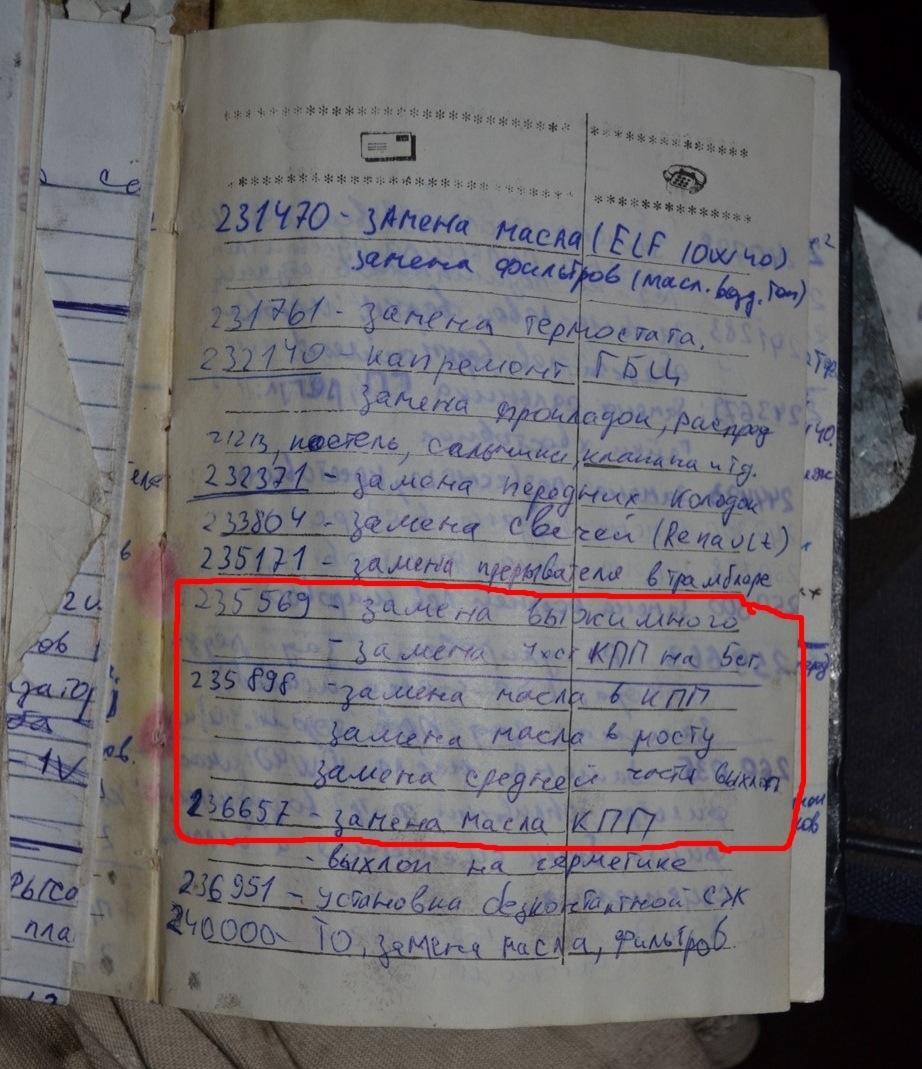 231470 - замена масла (ELF 10w40)
замена фильтров (масл. возд. топ)
231761 - замена термостата.
232140 капремонт ГБЦ
замена прокладок, распред
21213, постель, сальники, клапана итд.
232371 - замена передних колодок
233804 - замена свечей (Renault)
235171 - замена прерывателя в трамблоре
235569 - замена выжимного
- замена КПП на 5ст.
235898 - замена масла в КПП
замена масла в мосту
замена средней части выхлоп
236657 - замена масла КПП
- выхлоп на герметике
236951 - установка безконтактной СЖ
240000 - ТО, замена масла, фильтров.